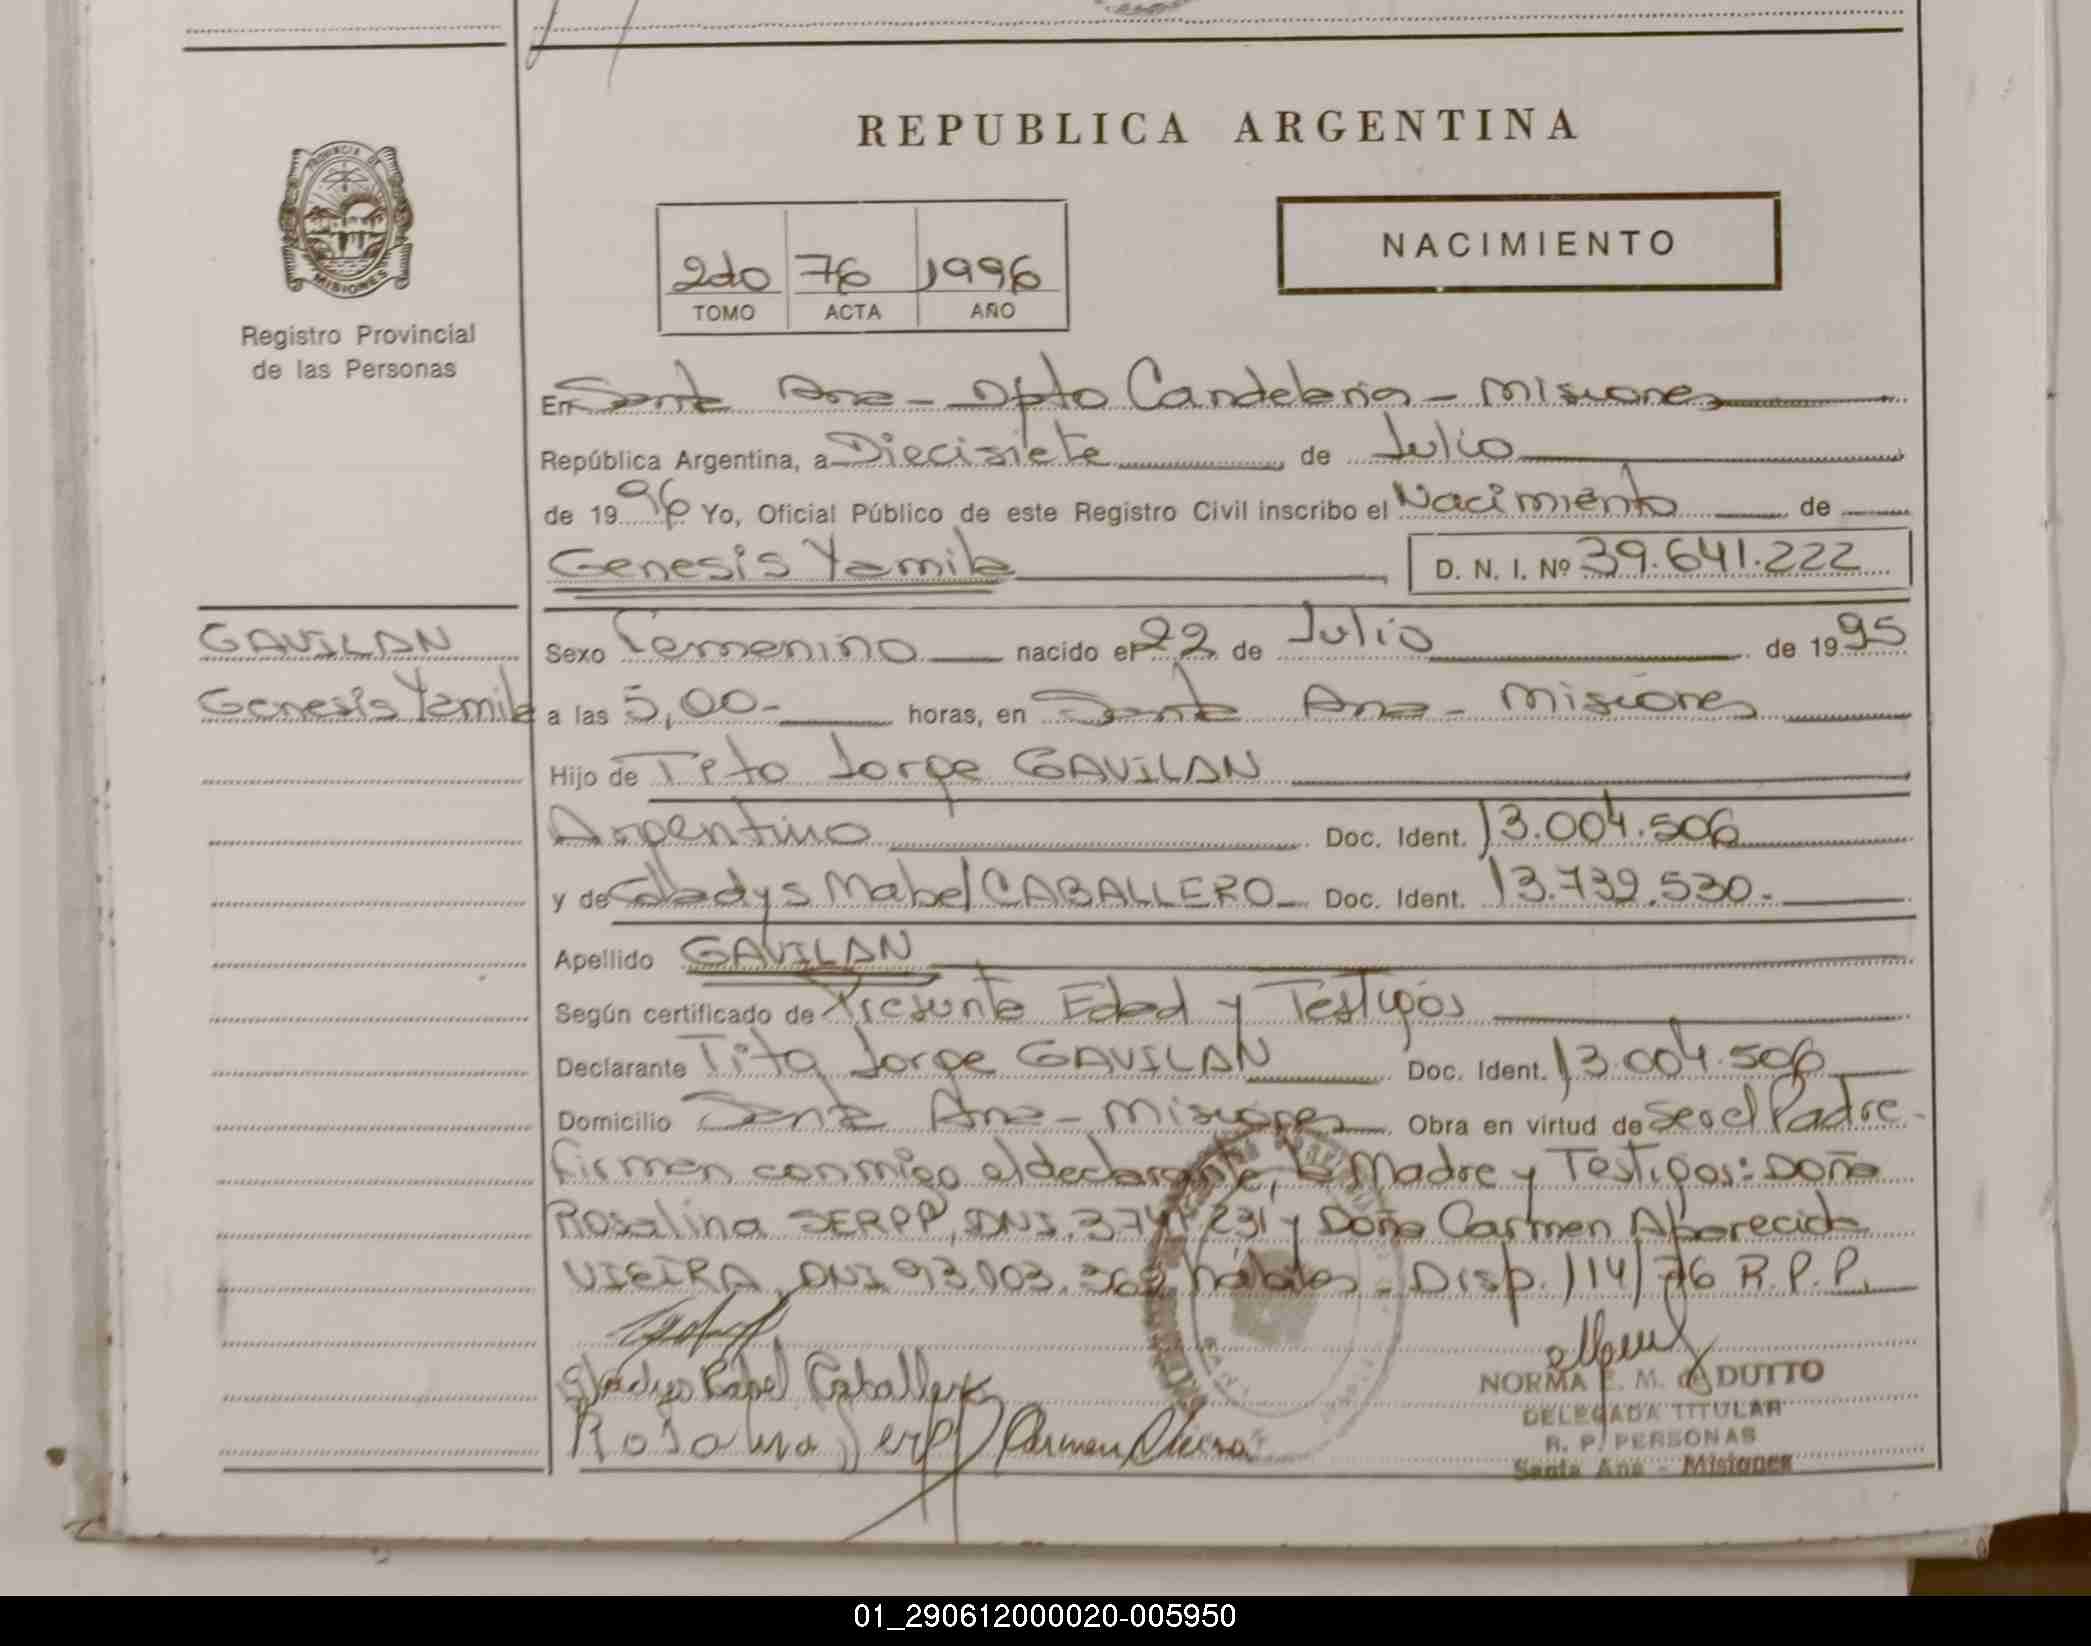 REPUBLICA ARGENTINA
PROVINCIA DE
MISIONES
Registro Provincial
de las Personas
2do 76 1996
TOMO ACTA AÑO
NACIMIENTO
En Santa Ana - Dpto Candelaria - Misiones
República Argentina, a Diecisiete de Julio
de 1996 Yo, Oficial Público de este Registro Civil inscribo el Nacimiento de
Genesis Yamila D. N. I. Nº 39.641.222
GAVILAN
Genesis Yamila
Sexo Femenino nacido el 22 de Julio de 1995
a las 5,00.- horas, en Santa Ana - Misiones
Hijo de Tito Jorge GAVILAN
Argentino Doc. Ident. 13.004.506
y de Gladys Mabel CABALLERO Doc. Ident. 13.739.530.-
Apellido GAVILAN
Según certificado de Presunta Edad y Testigos
Declarante Tito Jorge GAVILAN Doc. Ident. 13.004.506
Domicilio Santa Ana - Misiones Obra en virtud de Ser el Padre.-
Firman conmigo el declarante, la Madre y Testigos: Doña
Rosalina SERPP, DNI. 3.741.231 y Doña Carmen Aparecida
VIEIRA, DNI 93.003.368 hábiles - Disp. 114/76 R.P.P.
Gladys Mabel Caballero
Rosalina Serpp Carmen Vieira
NORMA E. M. de DUTTO
DELEGADA TITULAR
R. P. PERSONAS
Santa Ana - Misiones
01_290612000020-005950